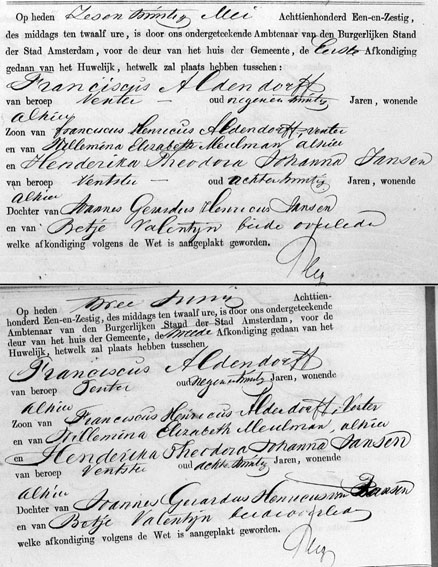 Op heden Zesentwintig Mei Achttienhonderd Een-en-Zestig,
des middags ten twaalf ure, is door ons ondergeteekende Ambtenaar van den Burgerlijken Stand
der Stad Amsterdam, voor de deur van het huis der Gemeente, de Eerste Afkondiging
gedaan van het Huwelijk, hetwelk zal plaats hebben tusschen:
Franciscus Aldendorff
van beroep Venter oud negenentwintig Jaren, wonende
alhier
Zoon van Franciscus Henricus Aldendorff, venter
en van Willemina Elizabeth Meulman alhier
en Henderika Theodora Johanna Jansen
van beroep Ventster oud achtentwintig Jaren, wonende
alhier
Dochter van Joannes Gerardus Henricus Jansen
en van Betje Valentyn beide overleden
welke afkondiging volgens de Wet is aangeplakt geworden.
Op heden twee Juny Achttien-
honderd Een-en-Zestig, des middags ten twaalf ure, is door ons ondergeteekende
Ambtenaar van den Burgerlijken Stand der Stad Amsterdam, voor de
deur van het huis der Gemeente, de tweede Afkondiging gedaan van het
Huwelijk, hetwelk zal plaats hebben tusschen
Franciscus Aldendorff
van beroep Venter oud negenentwintig Jaren, wonende
alhier
Zoon van Franciscus Henricus Aldendorff, Venter
en van Willemina Elizabeth Meulman, alhier
en Henderika Theodora Johanna Jansen
van beroep Ventster oud achtentwintig Jaren, wonende
alhier
Dochter van Joannes Gerardus Henricus Jansen
en van Betje Valentyn beide overleden
welke afkondiging volgens de Wet is aangeplakt geworden.